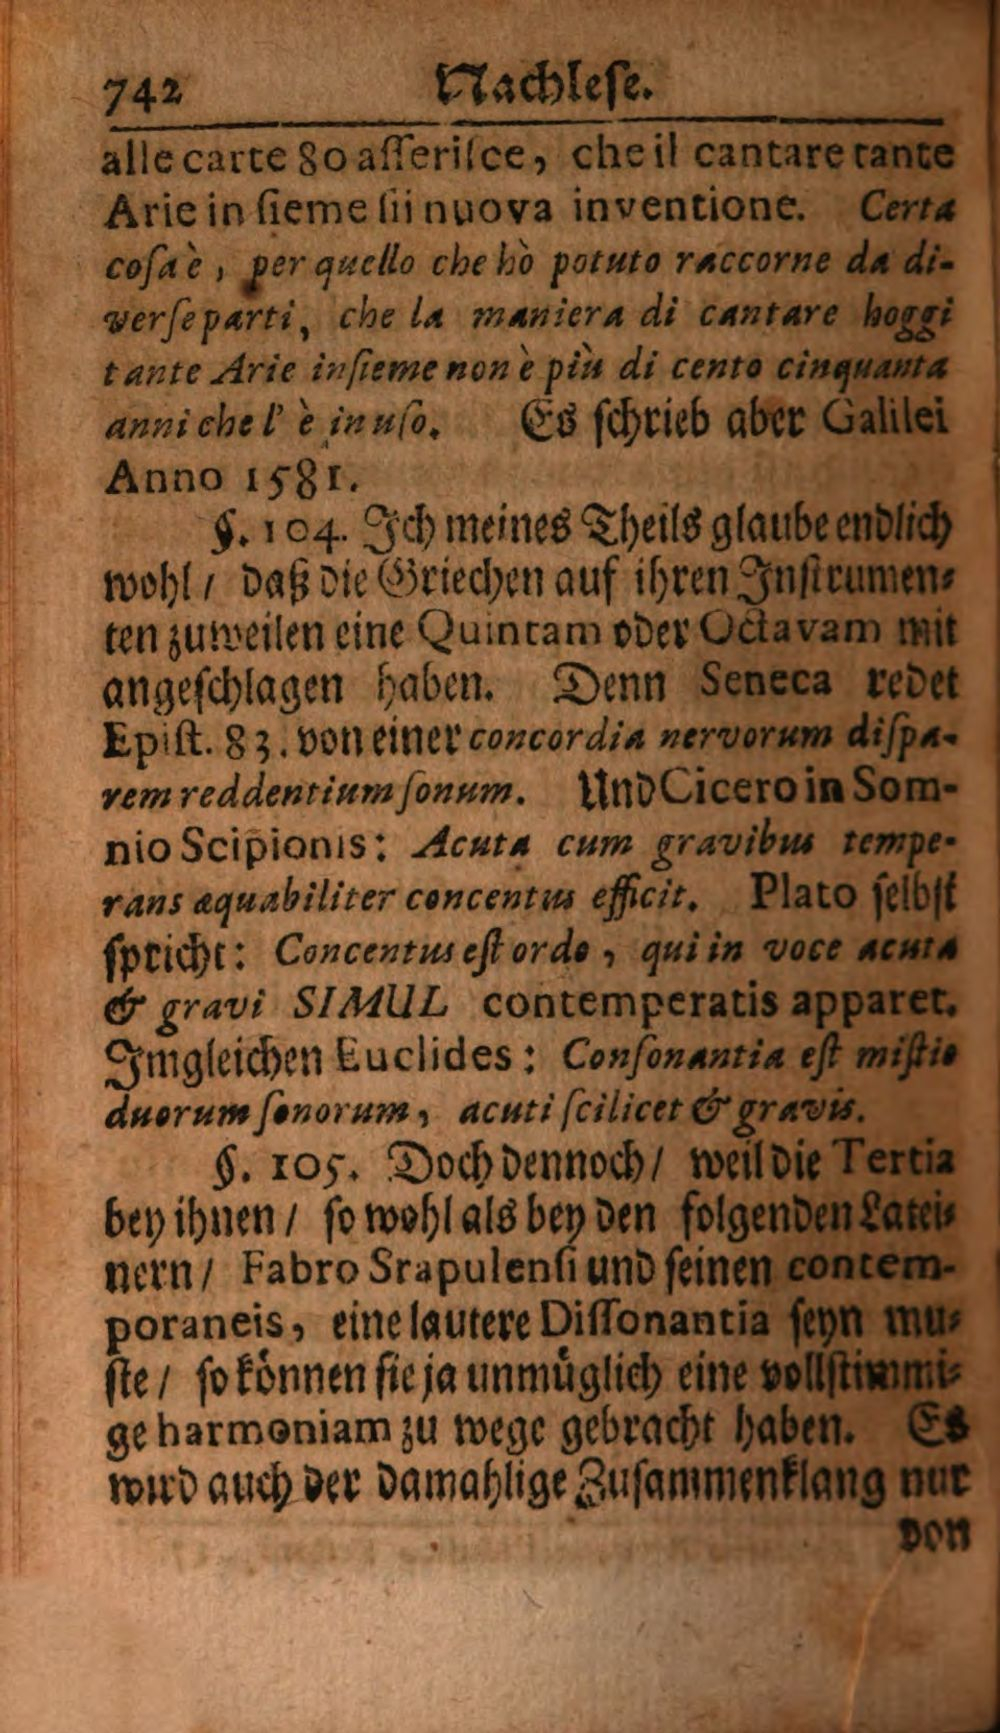 742 Nachlese.
alle carte 80 asserisce, che il cantare tante
Arie in sieme sii nuova inventione. Certa
cosa è, per quello che hò potuto raccorne da di-
verse parti, che la maniera di cantare hoggi
tante Arie insieme non è più di cento cinquanta
anni che l' è in uso. Es schrieb aber Galilei
Anno 1581.
§. 104. Ich meines Theils glaube endlich
wohl / daß die Griechen auf ihren Instrumen-
ten zuweilen eine Quintam oder Octavam mit
angeschlagen haben. Denn Seneca redet
Epist. 83. von einer concordia nervorum dispa-
rem reddentium sonum. Und Cicero in Som-
nio Scipionis: Acuta cum gravibus tempe-
rans æquabiliter concentus efficit. Plato selbst
spricht: Concentus est ordo, qui in voce acuta
& gravi SIMUL contemperatis apparet.
Imgleichen Euclides: Consonantia est mistio
duorum sonorum, acuti scilicet & gravis.
§. 105. Doch dennoch / weil die Tertia
bey ihnen / so wohl als bey den folgenden Latei-
nern / Fabro Srapulensi und seinen contem-
poraneis, eine lautere Dissonantia seyn mu-
ste / so können sie ja unmüglich eine vollstimmi-
ge harmoniam zu wege gebracht haben. Es
wird auch der damahlige Zusammenklang nur
von